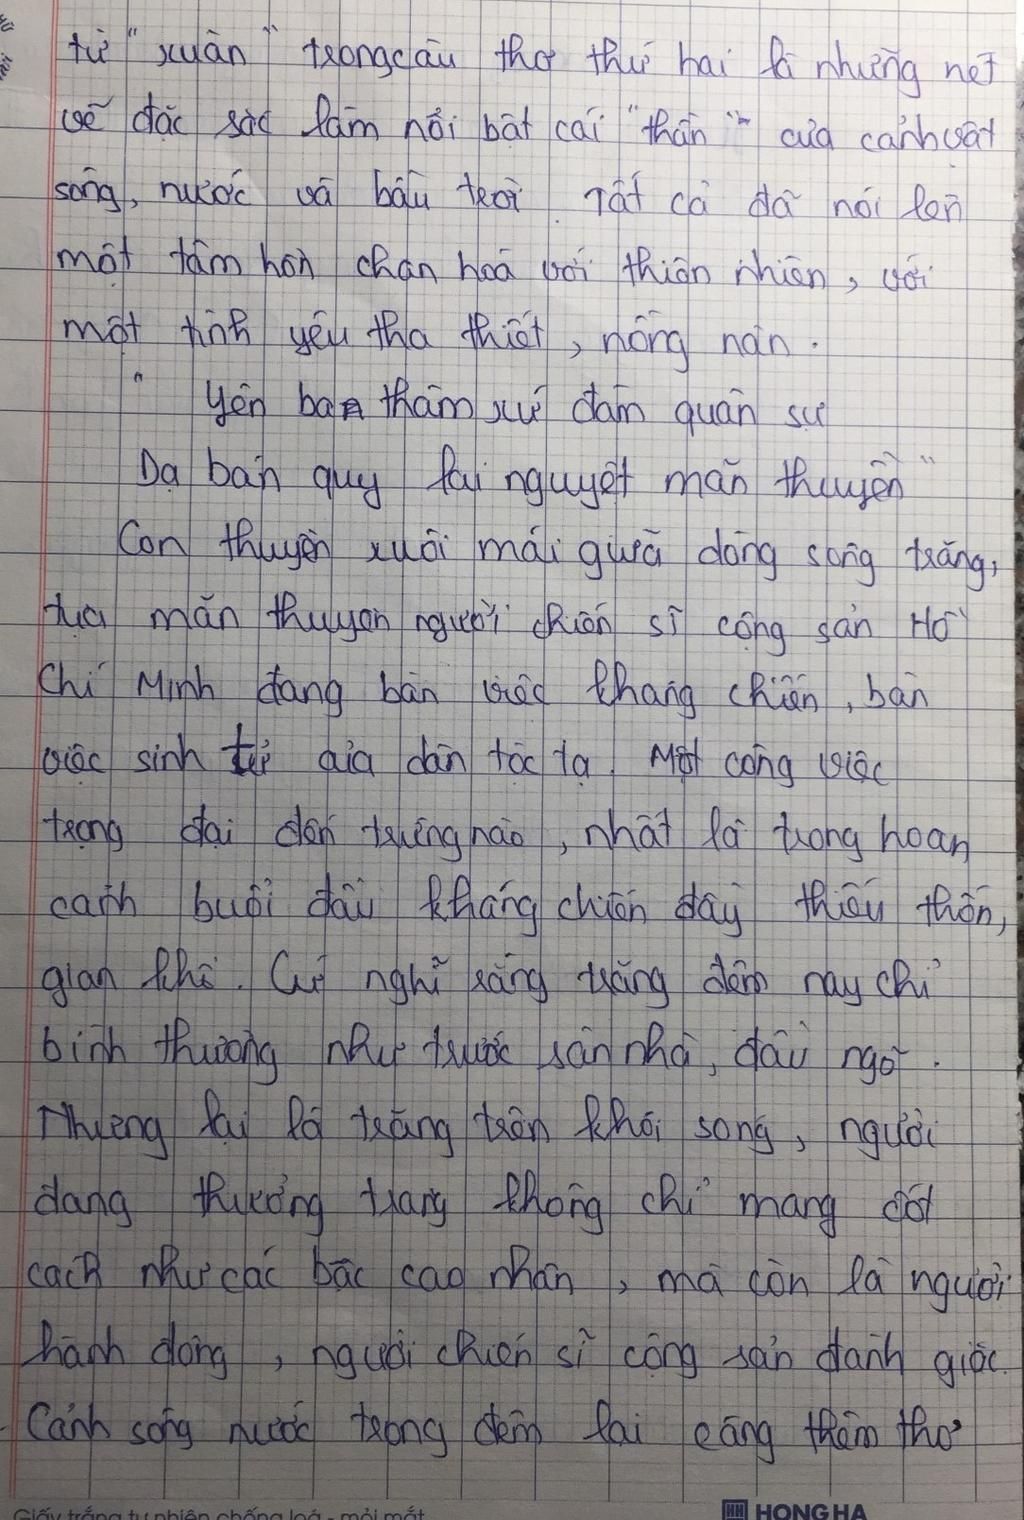 từ "xuân" trong câu thơ thứ hai là những nét
vẽ đặc sắc làm nổi bật cái "thần" của cảnh vật
sông, nước và bầu trời. Tất cả đã nói lên
một tâm hồn chan hoà với thiên nhiên, với
một tình yêu tha thiết, nồng nàn.
" Yên ba thâm xứ đàm quân sự
Dạ bán quy lai nguyệt mãn thuyền"
Con thuyền xuôi mái giữa dòng sông trăng,
tựa mãn thuyền người chiến sĩ cộng sản Hồ
Chí Minh đang bàn việc kháng chiến, bàn
việc sinh tử của dân tộc ta. Một công việc
trọng đại đến trừng nào, nhất là trong hoàn
cảnh buổi đầu kháng chiến đầy thiếu thốn,
gian khổ. Cứ nghĩ rằng trăng đêm nay chỉ
bình thường như trước sân nhà, đầu ngõ.
Nhưng lại là trăng trên khói sóng, người
đang thưởng trăng không chỉ mang cốt
cách như các bậc cao nhân, mà còn là người
hành động, người chiến sĩ cộng sản đánh giặc.
Cảnh sông nước trong đêm lại càng thêm thơ
Giấy trắng tự nhiên chống loá - mỏi mắt
HH HONG HA